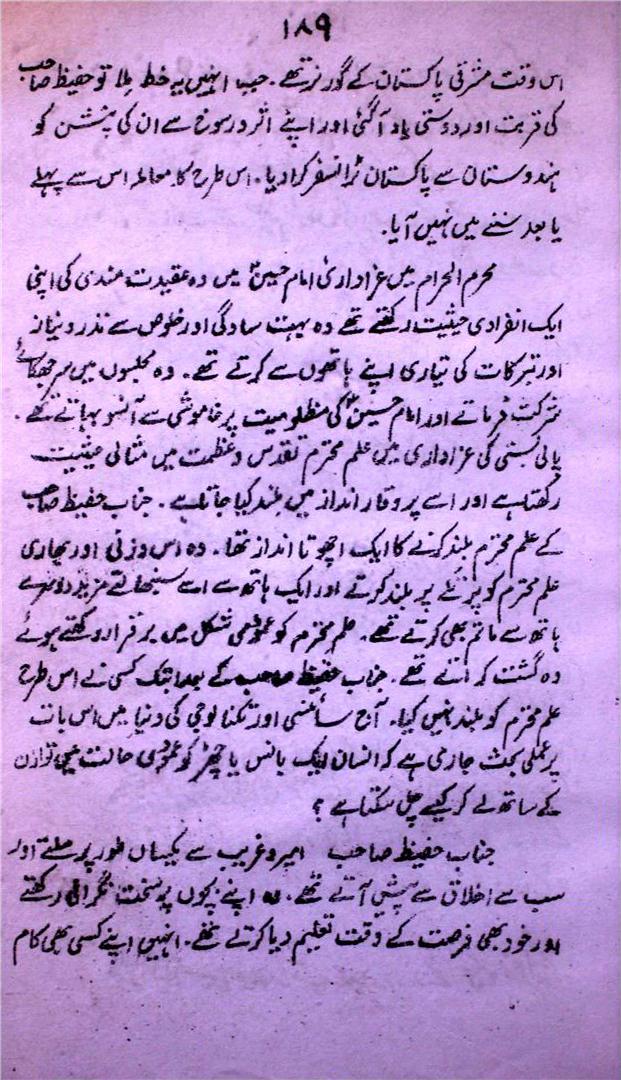 ۱۸۹
اس وقت مشرقی پاکستان کے گورنر تھے۔ جب انہیں یہ خط ملا تو حفیظ صاحب
کی قربت اور دوستی یاد آگئی اور اپنے اثر ورسوخ سے ان کی پنشن کو
ہندوستان سے پاکستان ٹرانسفر کرادیا۔ اس طرح کا معاملہ اس سے پہلے
یا بعد سننے میں نہیں آیا۔
محرم الحرام میں عزاداریٔ امام حسینؑ میں وہ عقیدت مندی کی اپنی
ایک انفرادی حیثیت رکھتے تھے وہ بہت سادگی اور خلوص سے نذر و نیاز
اور تبرکات کی تیاری اپنے ہاتھوں سے کرتے تھے۔ وہ مجلسوں میں سر جھکائے
شرکت فرماتے اور امام حسینؑ کی مظلومیت پر خاموشی سے آنسو بہاتے تھے۔
پالی بستی کی عزاداری میں علم محترم تقدس و عظمت میں مثالی حیثیت
رکھتا ہے اور اسے پر وقار انداز میں بلند کیا جاتا ہے۔ جناب حفیظ صاحب
کے علم محترم بلند کرنے کا ایک اچھوتا انداز تھا۔ وہ اس وزنی اور بھاری
علم محترم کو پر بلند کرتے اور ایک ہاتھ سے اسے سنبھالتے مزید دوسرے
ہاتھ سے ماتم بھی کرتے تھے۔ علم محترم کو عمودی شکل میں برقرار رکھتے ہوئے
وہ گشت کراتے تھے۔ جناب حفیظ صاحب کے بعد ابتک کسی نے اس طرح
علم محترم کو بلند نہیں کیا۔ آج سائنسی اور تکنالوجی کی دنیا میں اس بات
پر عملی بحث جاری ہے کہ انسان ایک بانس یا چھڑ کو عمودی حالت میں توازن
کے ساتھ لے کر کیسے چل سکتا ہے؟
جناب حفیظ صاحب امیر و غریب سے یکساں طور پر ملتے اور
سب سے اخلاق سے پیش آتے تھے۔ وہ اپنے بچوں پر سخت نگرانی رکھتے
اور خود بھی فرصت کے وقت تعلیم دیا کرتے تھے۔ انہیں اپنے کسی بھی کام